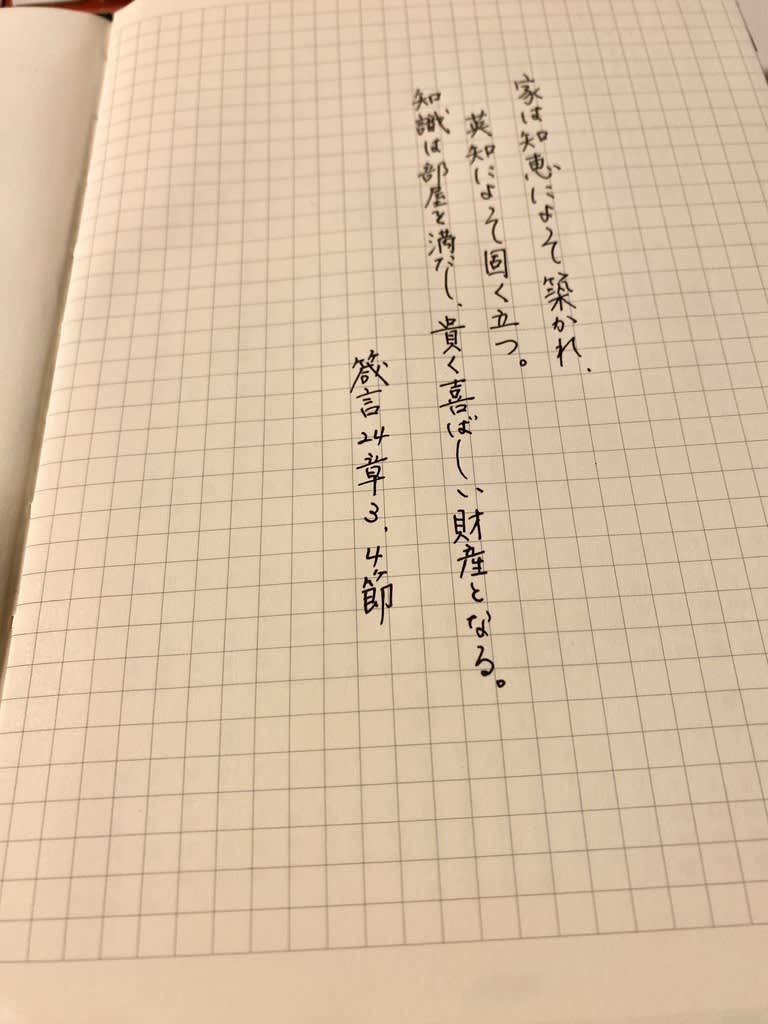 家は知恵によって築かれ、
英知によって固く立つ。
知識は部屋を満たし、貴く喜ばしい財産となる。
箴言24章3、4節